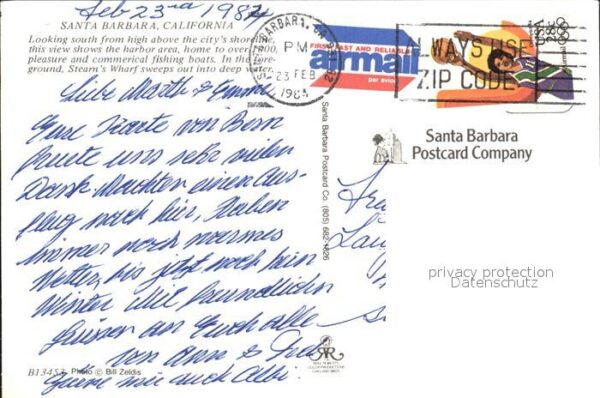 Feb 23rd 1984
SANTA BARBARA, CALIFORNIA
Looking south from high above the city's shoreline,
this view shows the harbor area, home to over 1000
pleasure and commerical fishing boats. In the fore-
ground, Stearn's Wharf sweeps out into deep water.
SANTA BARBARA, CA
PM
23 FEB
1984
FIRST FAST AND RELIABLE
airmail
par avion
ALWAYS USE
ZIP CODE
USA
28c
Liebe &
Eure Karte von Bern
freute uns sehr vielen
Dank. Machten einen Aus-
flug nach hier, haben
immer noch warmes
Wetter, bis jetzt noch kein
Winter. Viel freundlichen
Grüssen an Euch alle
von &
auch
Santa Barbara
Postcard Company
Santa Barbara Postcard Co. (805) 682-1826
privacy protection
Datenschutz
B13453 Photo © Bill Zeldis